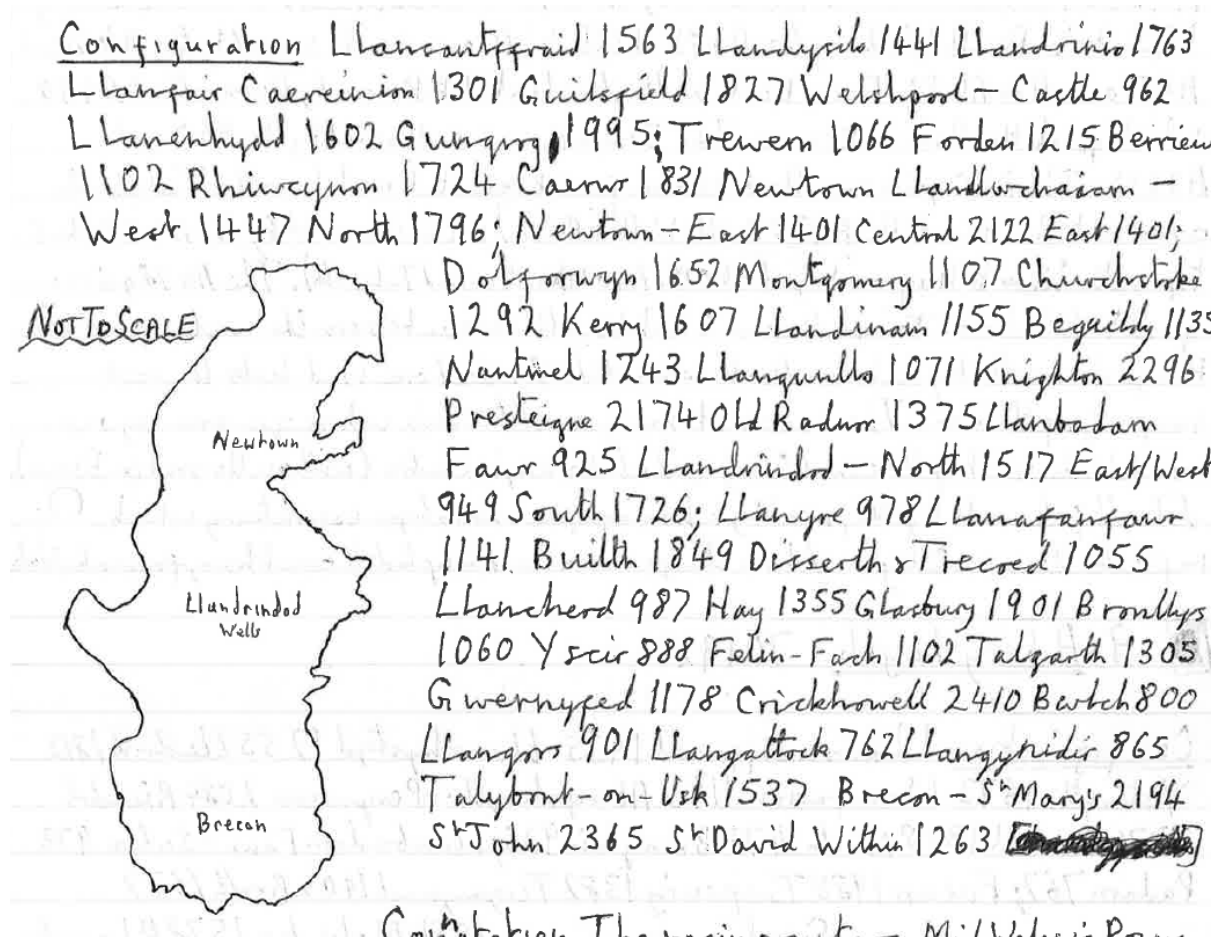 Configuration Llansantffraid 1563 Llandysilo 1441 Llandrinio 1763
Llanfair Caereinion 1301 Guilsfield 1827 Welshpool - Castle 962
Llanerhydd 1602 Gungrog 1995; Trewern 1066 Forden 1215 Berriew
1102 Rhiwcynon 1724 Caersws 1831 Newtown Llanllwchaiarn -
West 1447 North 1796; Newtown - East 1401 Central 2122 East 1401;
Dolforwyn 1652 Montgomery 1107 Churchstoke
NOT TO SCALE
1292 Kerry 1607 Llandinam 1155 Beguildy 1135
Nantmel 1243 Llangunllo 1071 Knighton 2296
Presteigne 2174 Old Radnor 1375 Llanbadarn
Newtown
Fawr 925 Llandrindod - North 1517 East/West
949 South 1726; Llanyre 978 Llanafanfawr
1141 Builth 1849 Disserth & Trecoed 1055
Llandrindod
Wells
987 Hay 1355 Glasbury 1901 Bronllys
1060 Yscir 888 Felin-Fach 1102 Talgarth 1305
Gwernyfed 1178 Crickhowell 2410 800
Llangors 901 Llangattock 762 Llangynidir 865
Talybont-on-Usk 1537 Brecon - St Mary's 2194
Brecon
St John 2365 St David Within 1263